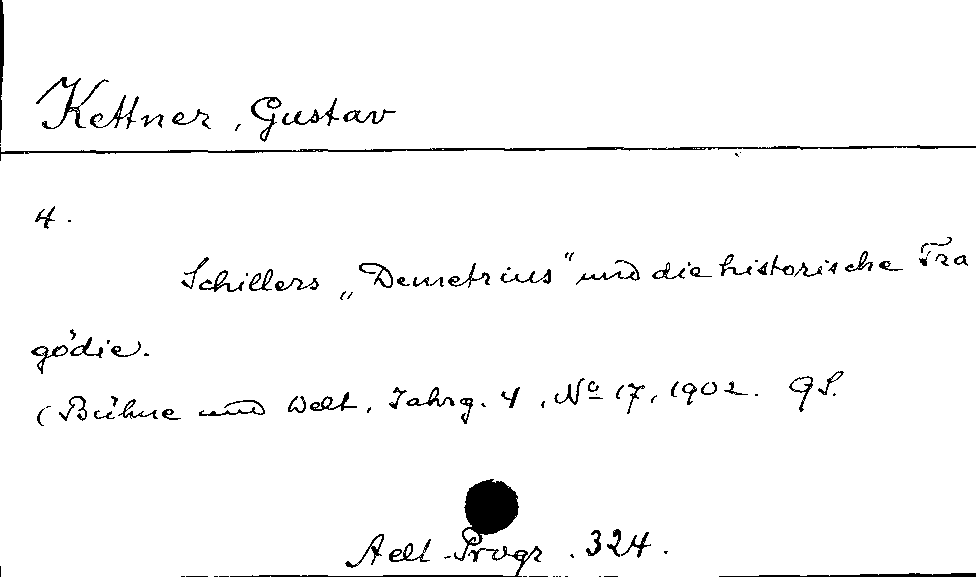 Kettner, Gustav
4.
Schillers „Demetrius" und die historische Tra
gödie.
(Bühne und Welt, Jahrg. 4, No 17, 1902. 9 S.
Aelt. Progr. 324.